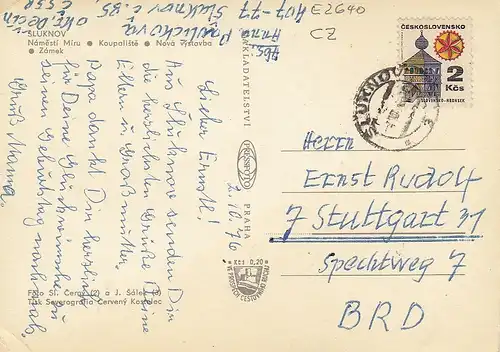 ŠLUKNOV
Náměstí Míru • Koupaliště • Nová výstavba
• Zámek
Abs:
Anna Pavlíčková
Šluknov c. 85,
407-77
okr. Děčín
ČSSR
E2640
CZ
ČESKOSLOVENSKO
2
Kčs
SLOVENSKO-HORNSEK
ŠLUKNOV
NAKLADATELSTVÍ
PRESSFOTO
PRAHA
2.10.76
Lieber Ernstl!
Aus Šluknov senden Dir
die herzlichsten Grüße Deine
Eltern u. Großmutter.
Papa dankt Dir herzlich
für Deine Glückwünsche zu
seinem Geburtstag nochmals.
Gruß Mama.
Kčs 0,20
VE PROSPĚCH CESTOVNÍHO RUCHU
Foto Sl. Černý (2) a J. Šálek (3)
Tisk Severografia Červený Kostelec
Herrn
Ernst Rudolf
7 Stuttgart 31
Spechtweg 7
BRD